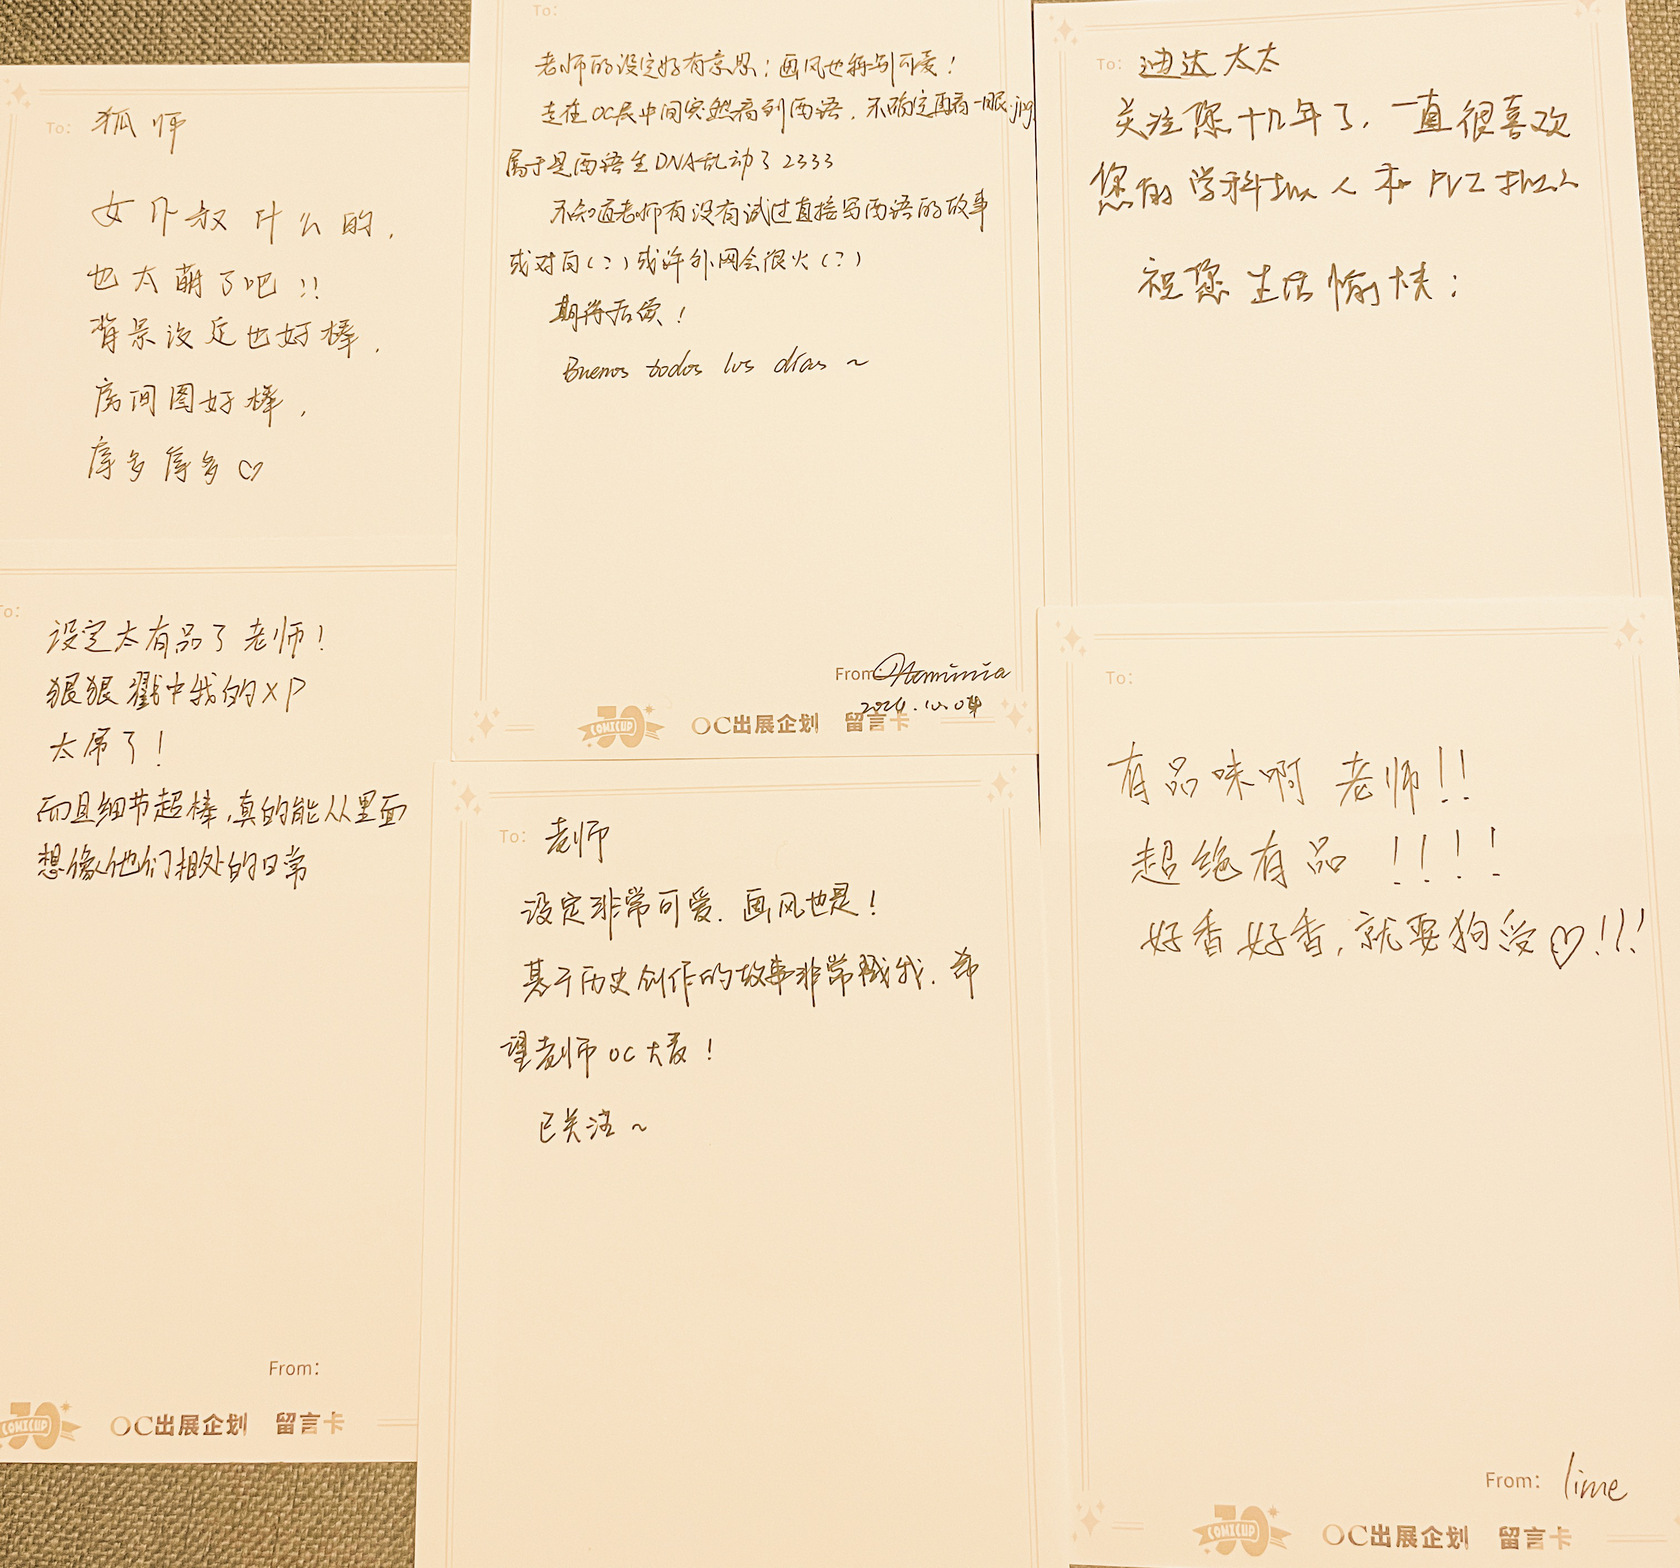 To: 狐师
女仆叔什么的,
也太萌了吧!!
背景设定也好棒,
房间图好棒,
库多库多♡
To:
老师的设定好有意思;画风也特别可爱!
走在OC展中间突然看到西语,不确定再看一眼.jpg
属于是西语生DNA乱动了2333
不知道老师有没有试过直接写西语的故事
或对白(?)或许外网会很火(?)
期待后续!
Buenos todos los días ~
From:
2024.10.04
COMICUP 30 OC出展企划 留言卡
To: 迪达太太
关注您十几年了,一直很喜欢
您的学科拟人和PVZ拟人
祝您生活愉快:
To:
设定太有品了老师!
狠狠戳中我的XP
太席了!
而且细节超棒,真的能从里面
想像他们相处的日常
From:
COMICUP 30 OC出展企划 留言卡
To: 老师
设定非常可爱.画风也是!
基于历史创作的故事非常戳我.希
望老师OC大麦!
已关注~
To:
有品味啊 老师!!
超绝有品 !!!!
好香好香,就要狗受♡!!!
From: lime
COMICUP 30 OC出展企划 留言卡